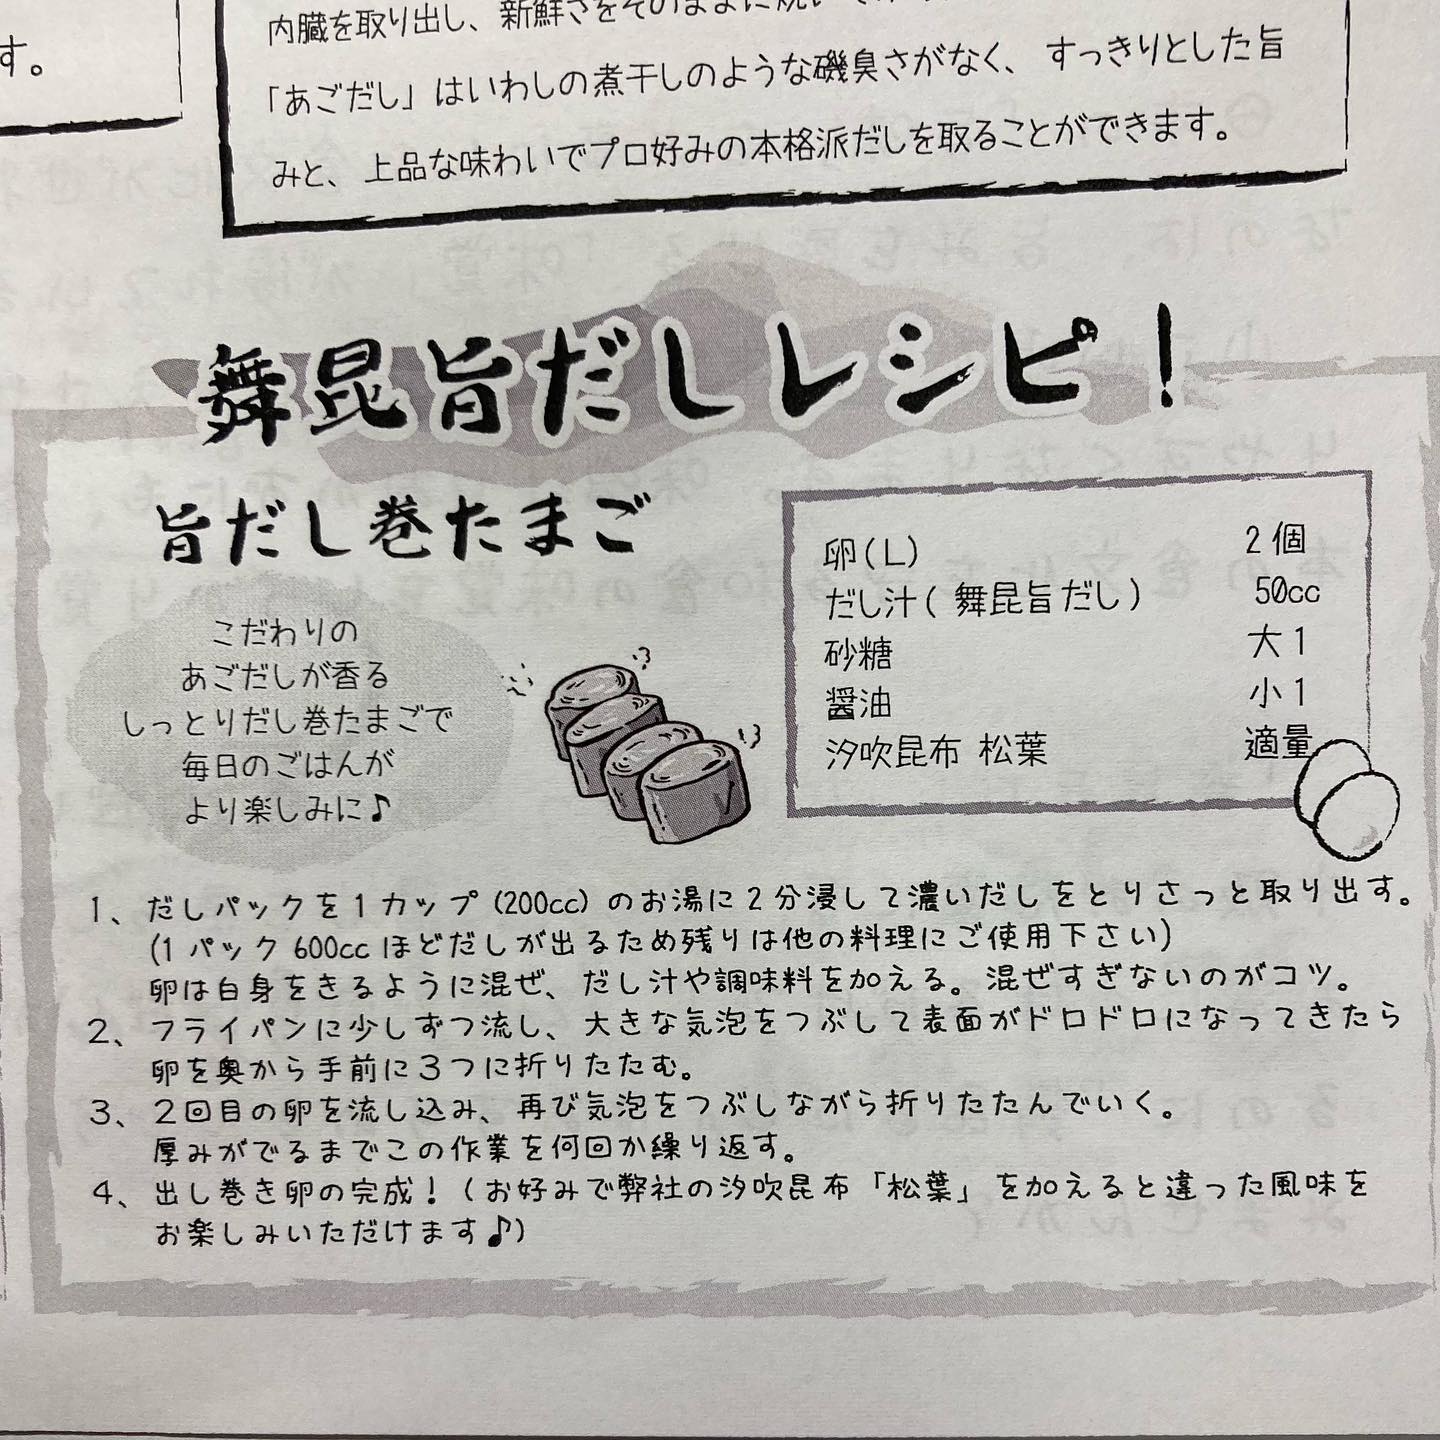 す。
内臓を取り出し、新鮮さをそのままに
「あごだし」はいわしの煮干しのような磯臭さがなく、すっきりとした旨
みと、上品な味わいでプロ好みの本格派だしを取ることができます。
舞昆旨だしレシピ!
旨だし巻たまご
こだわりの
あごだしが香る
しっとりだし巻たまごで
毎日のごはんが
より楽しみに♪
卵(L) 2個
だし汁(舞昆旨だし) 50cc
砂糖 大1
醤油 小1
汐吹昆布 松葉 適量
1、だしパックを1カップ(200cc)のお湯に2分浸して濃いだしをとりさっと取り出す。
(1パック600ccほどだしが出るため残りは他の料理にご使用下さい)
卵は白身をきるように混ぜ、だし汁や調味料を加える。混ぜすぎないのがコツ。
2、フライパンに少しずつ流し、大きな気泡をつぶして表面がドロドロになってきたら
卵を奥から手前に3つに折りたたむ。
3、2回目の卵を流し込み、再び気泡をつぶしながら折りたたんでいく。
厚みがでるまでこの作業を何回か繰り返す。
4、出し巻き卵の完成!(お好みで弊社の汐吹昆布「松葉」を加えると違った風味を
お楽しみいただけます♪)